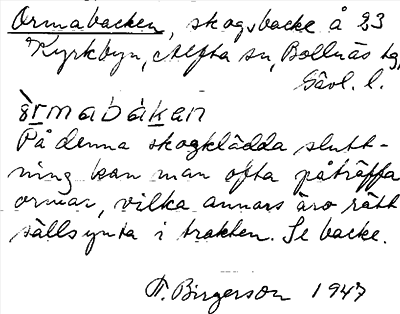 Ormabacken, skogsbacke å 23
Kyrkbyn, Alfta sn, Bollnäs tg,
Gävl. l.
òrmabàkan
På denna skogklädda slutt-
ning kan man ofta påträffa
ormar, vilka annars äro rätt
sällsynta i trakten. Se backe.
F. Birgerson 1947